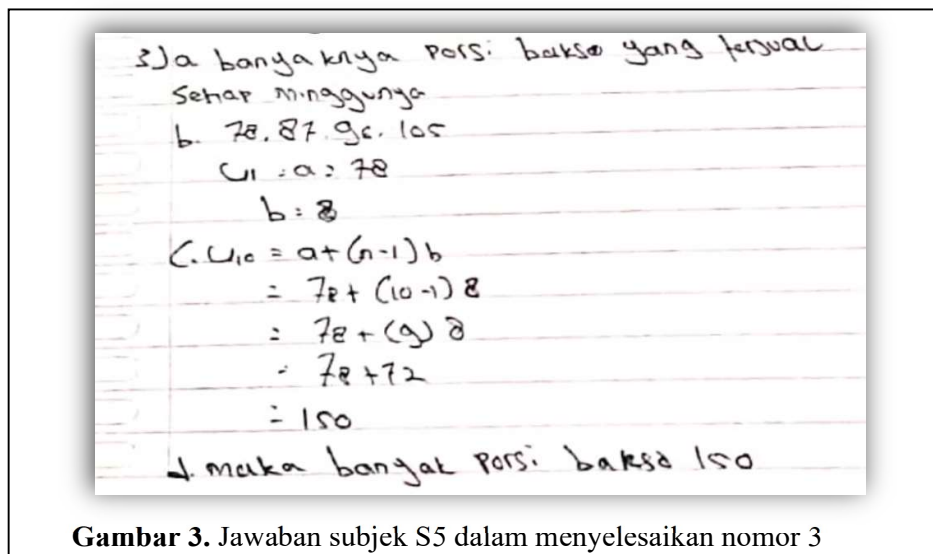 3) a banyaknya Porsi bakso yang terjual
Setiap minggunya
b. 78. 87. 96. 105
U1 : a : 78
b : 8
C. U10 = a + (n-1) b
= 78 + (10-1) 8
= 78 + (9) 8
= 78 + 72
= 150
d. maka banyak Porsi bakso 150
Gambar 3. Jawaban subjek S5 dalam menyelesaikan nomor 3